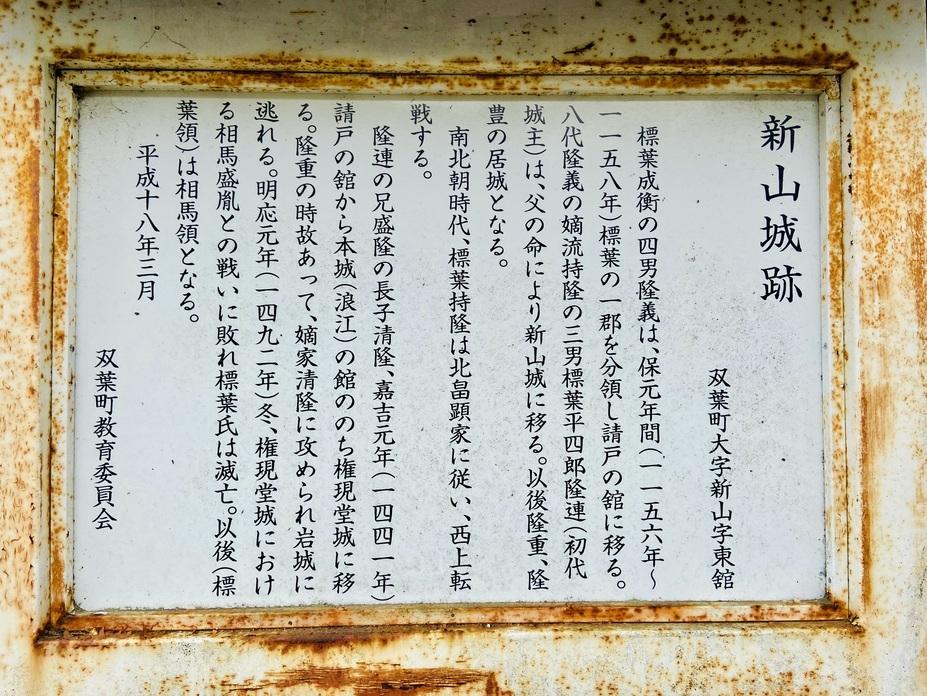 新山城跡
双葉町大字新山字東舘
標葉成衡の四男隆義は、保元年間(一一五六年~
一一五八年)標葉の一郡を分領し請戸の舘に移る。
八代隆義の嫡流持隆の三男標葉平四郎隆連(初代
城主)は、父の命により新山城に移る。以後隆重、隆
豊の居城となる。
南北朝時代、標葉持隆は北畠顕家に従い、西上転
戦する。
隆連の兄盛隆の長子清隆、嘉吉元年(一四四一年)
請戸の舘から本城(浪江)の館ののち権現堂城に移
る。隆重の時故あって、嫡家清隆に攻められ岩城に
逃れる。明応元年(一四九二年)冬、権現堂城におけ
る相馬盛胤との戦いに敗れ標葉氏は滅亡。以後(標
葉領)は相馬領となる。
平成十八年三月
双葉町教育委員会